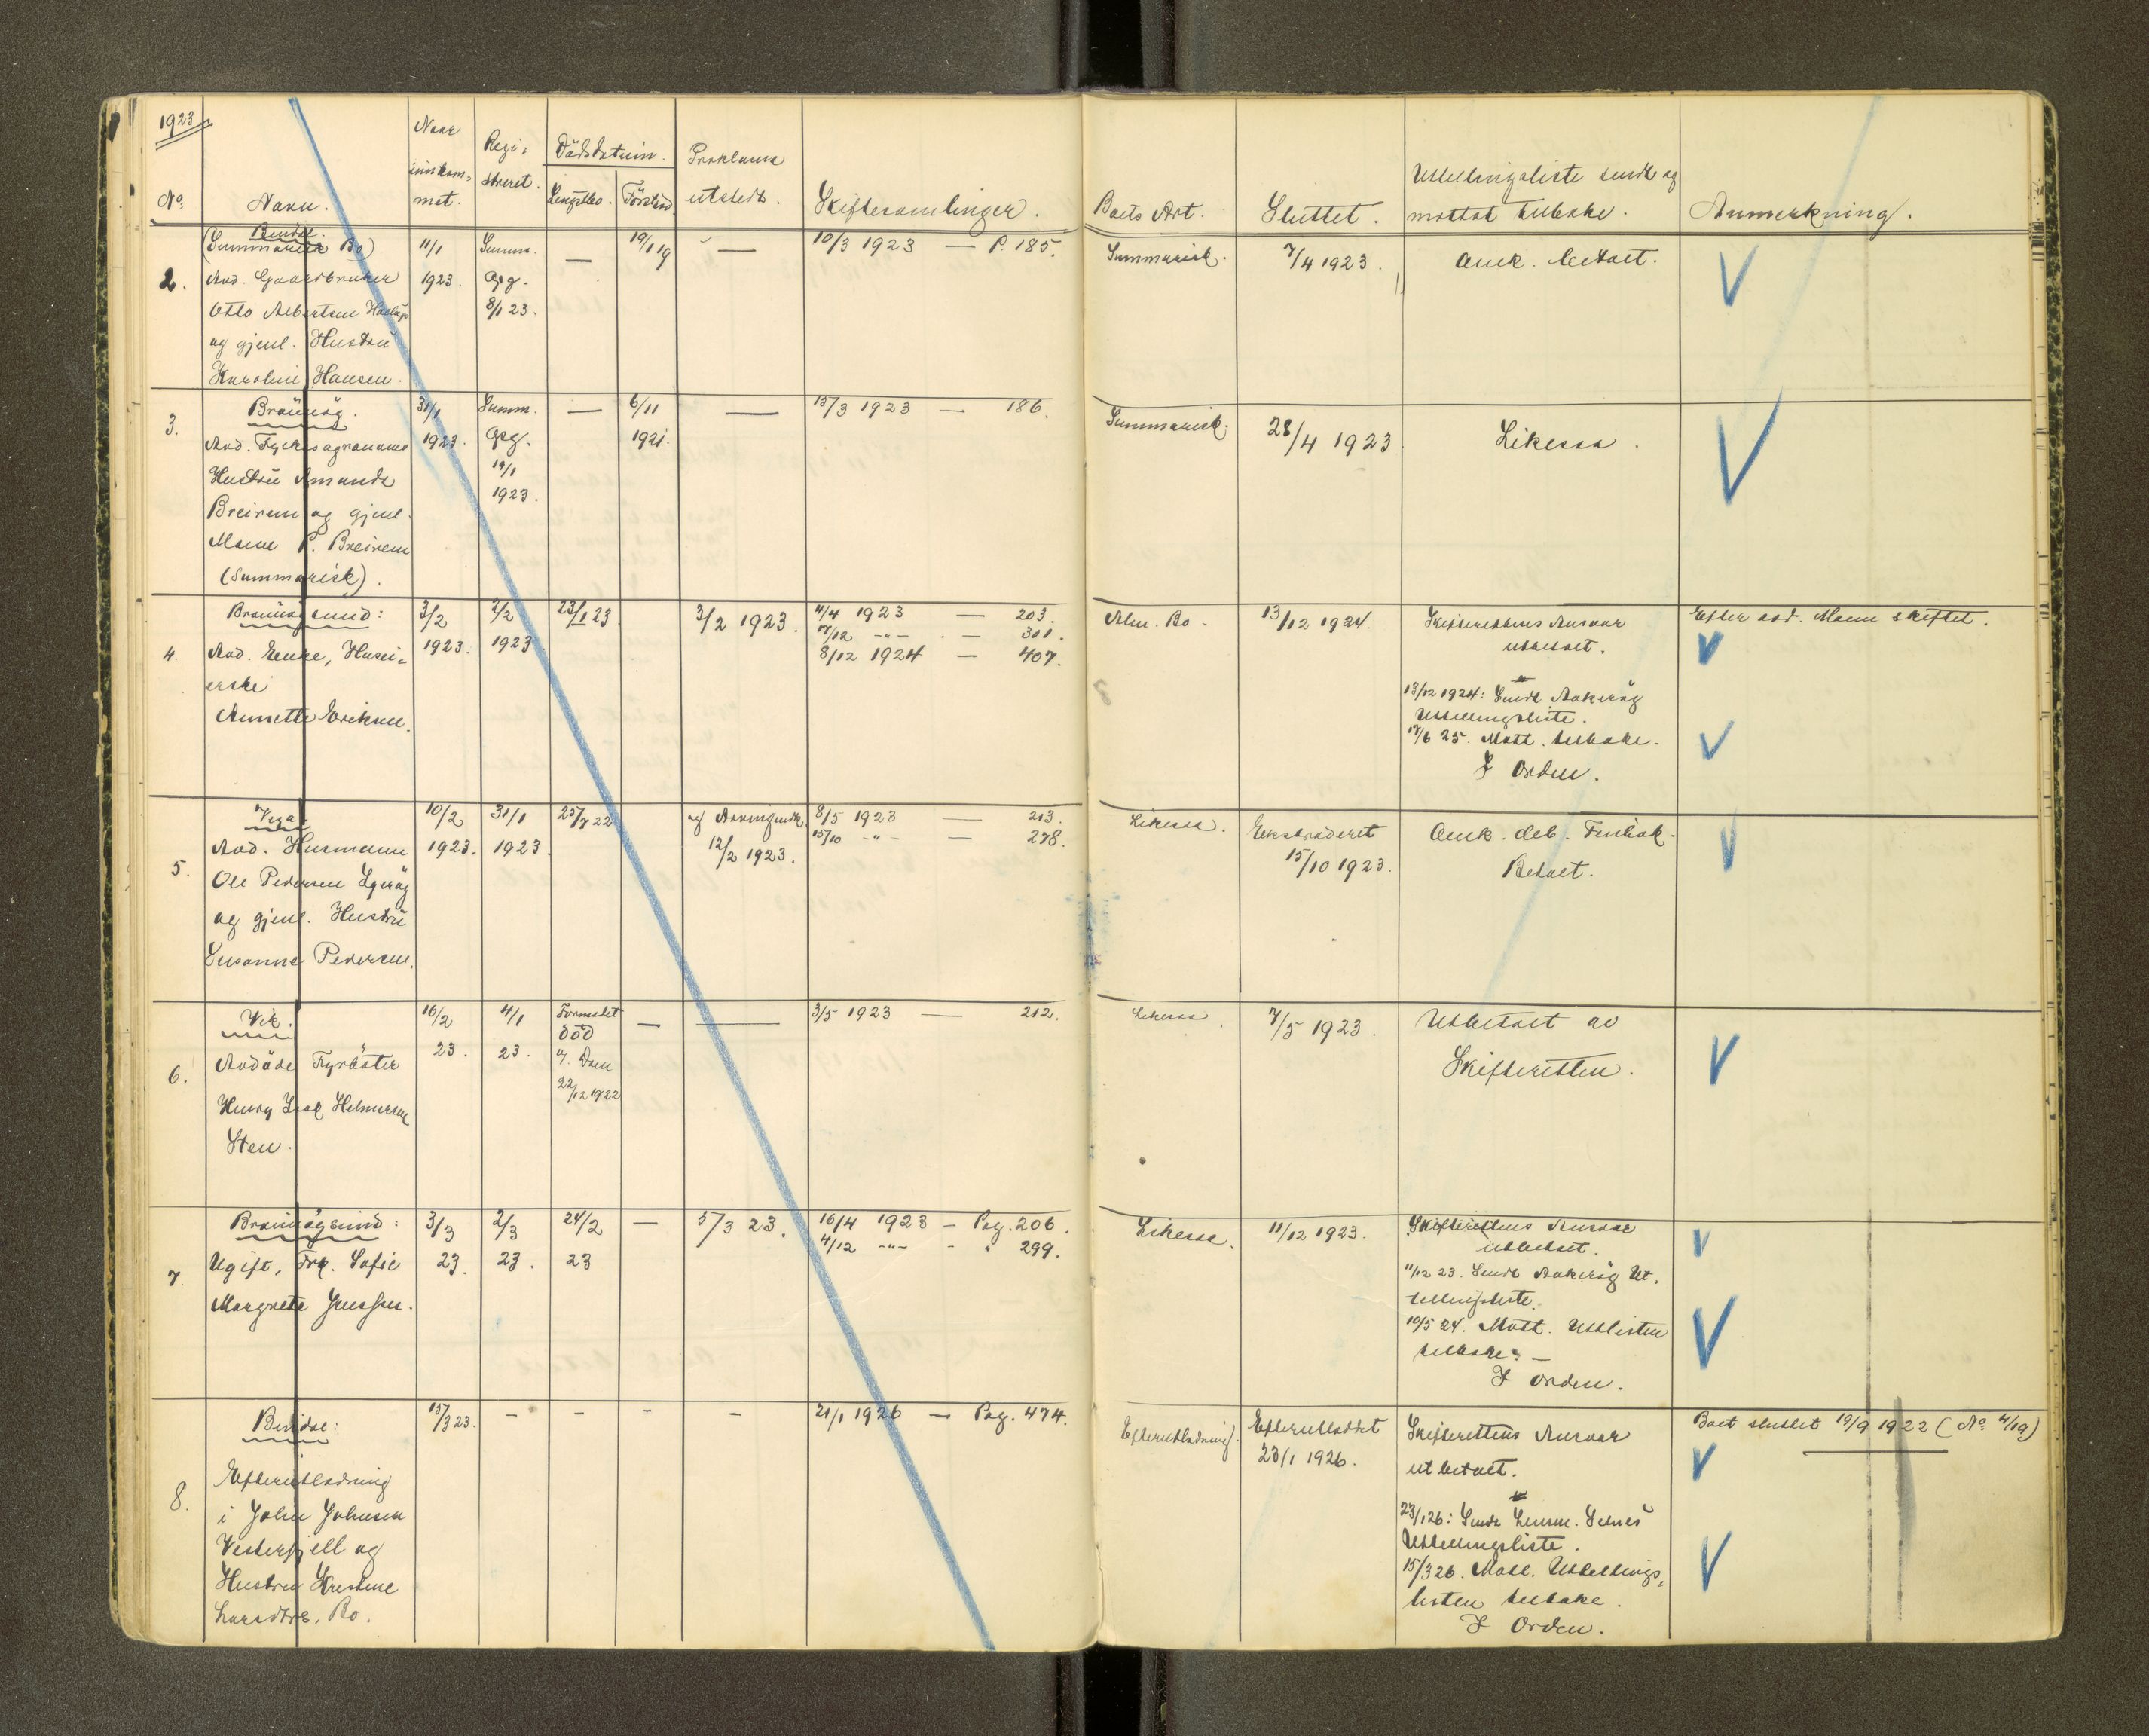 1923
No.
Navn.
Naar innkommet.
Registreret.
Dödsdatum.
Længstlev.
Förstavd.
Proklama utstedt.
Skiftesamlinger.
Boets Art.
Sluttet.
Utlællingsliste sendt og mottat tilbake.
Anmerkning.
2.
Bindal.
(Summarisk Bo)
Avd. Gaardbruker
Otto Albertsen
og gjenl. Hustru
Karoline Hansen.
11/1
1923.
Summ.
Opg.
8/1 23.
—
19/1 19
—
10/3 1923 — P. 185.
Summarisk.
7/4 1923.
Amk. betalt.
3.
Brönnöy.
Avd. Fylkesagronoms
Hustru Amanda
Breirem og gjenl.
Mann P. Breirem
(Summarisk).
31/1
1923.
Summ.
Opg.
19/1
1923.
—
6/11
1921.
—
15/3 1923 — 186.
Summarisk.
28/4 1923.
Likesaa.
4.
Brönnöysund:
Avd. Enke, Husei-
erske
Annette Eriksen.
3/2
1923.
2/2
1923
23/1 23
3/2 1923.
4/4 1923 — 203.
7/12 -"- — 301.
8/12 1924 — 407.
Alm. Bo.
13/12 1924.
Skifterettens Ansvar
utbetalt.
13/12 1924: Sendt Aakeröy
Utlællingsliste.
17/6 25. Mott. tilbake.
I Orden.
Efter avd. Mann skiftet.
5.
Vega:
Avd. Husmann
Ole Pedersen
og gjenl. Hustru
Susanne Pedersen.
10/2
1923.
31/1
1923.
25/7 22
og Arvingindk.
12/2 1923.
8/5 1923 — 213.
15/10 -"- — 278.
Likesaa.
Ekstraderet
15/10 1923.
Amk. deb.
Betalt.
6.
Vik.
Avdöde Fyrböter
Henry Isak Helmersen
Sten.
16/2
23.
4/1
23.
Formodet
död
22/12 1922
—
—
3/5 1923 — 212.
Likesaa.
7/5 1923.
Utbetalt av
Skifteretten.
7.
Brönnöysund:
Ugift, Frk. Sofie
Margrete Jenssen.
3/3
23.
2/3
23.
24/2
23
—
5/3 23.
16/4 1923 — Pag. 206.
4/12 -"- - " 299.
Likesaa.
11/12 1923.
Skifterettens Ansvar
utbetalt.
11/12 23. Sendt Aakeröy Ut.
lællingsliste.
10/5 24. Mott. Utl.listen
tilbake. —
I Orden.
8.
Bindal:
Efterutlodning
i John Johnsen
Vesterfjell og
Hustru Kristine
Larsdtrs. Bo.
15/3 23.
-
-
-
-
21/1 1926 — Pag. 474.
Efterutlodning.
Efterutloddet
23/1 1926.
Skifterettens Ansvar
utbetalt.
23/1 26: Sendt Lensm.
Utlællingsliste.
15/3 26. Mott. Utlællings-
listen tilbake.
I Orden.
Boet sluttet 19/9 1922 (No. 4/19)